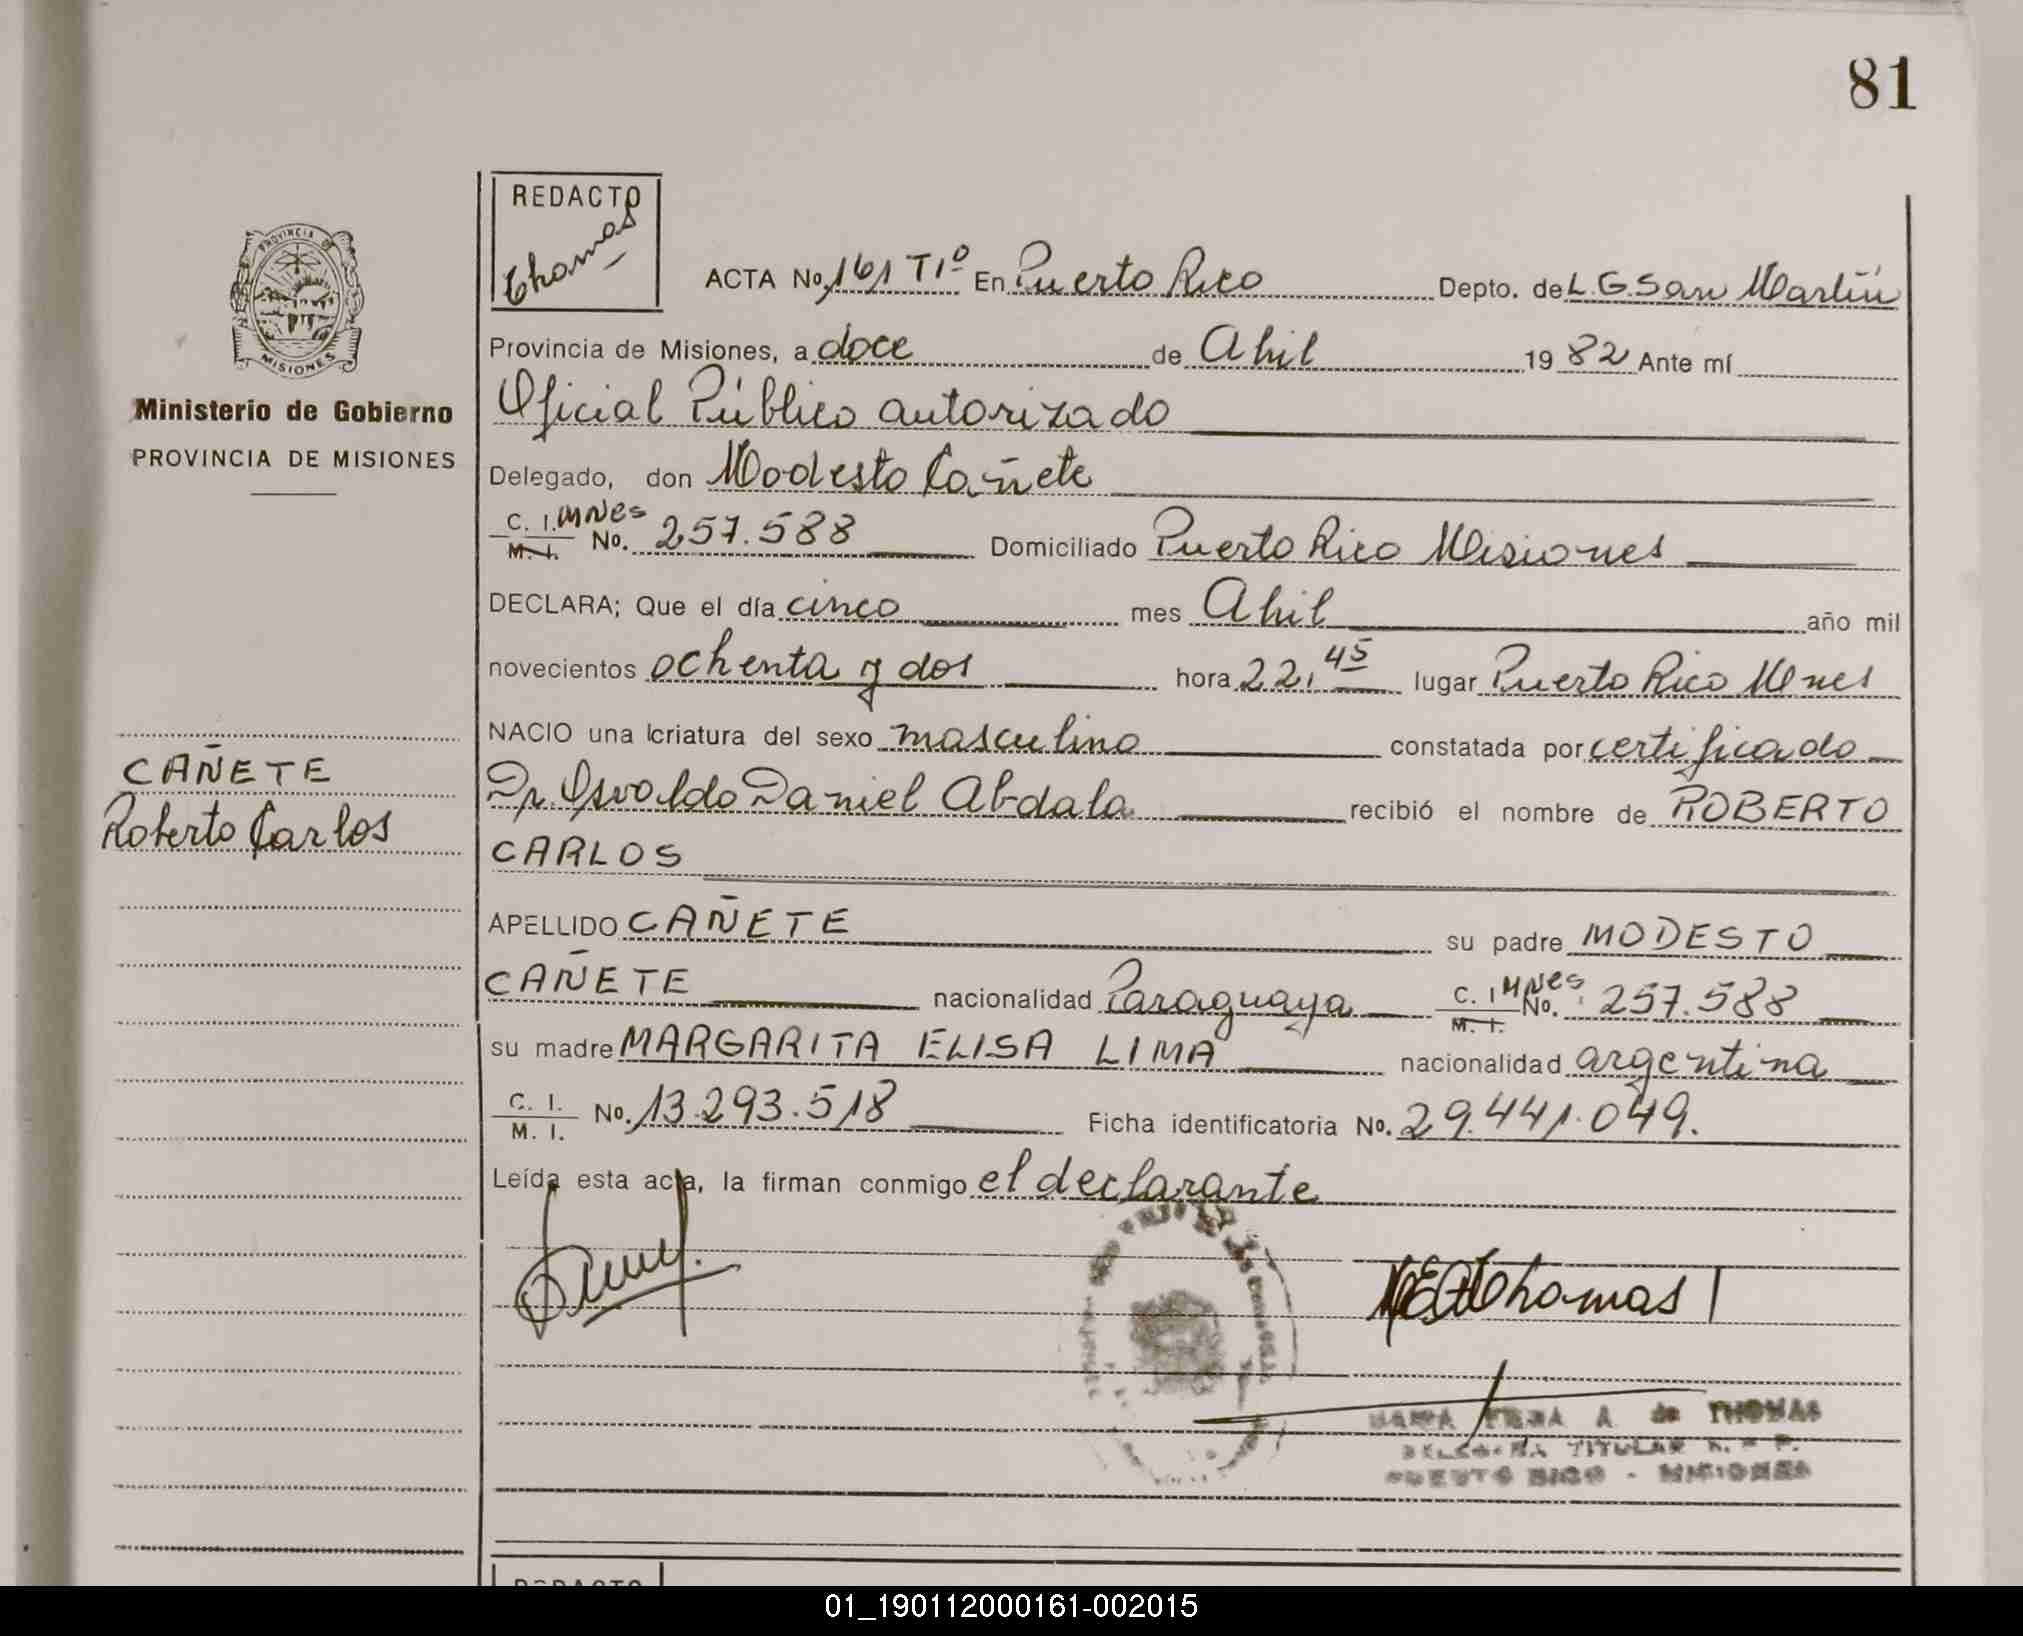 81
REDACTO
Thomas
PROVINCIA DE
MISIONES
Ministerio de Gobierno
PROVINCIA DE MISIONES
ACTA No. 161 T1º En Puerto Rico Depto. de L.G.San Martín
Provincia de Misiones, a doce de Abril 1982 Ante mí
Oficial Público autorizado
Delegado, don Modesto Cañete
C. I. Mnes
M. I. No. 257.588 Domiciliado Puerto Rico Misiones
DECLARA; Que el día cinco mes Abril año mil
novecientos ochenta y dos hora 22,45 lugar Puerto Rico Mnes
NACIO una criatura del sexo masculino constatada por certificado
Dr. Osvaldo Daniel Abdala recibió el nombre de ROBERTO
CARLOS
CAÑETE
Roberto Carlos
APELLIDO CAÑETE su padre MODESTO
CAÑETE nacionalidad Paraguaya C. I. Mnes M. I. No. 257.588
su madre MARGARITA ELISA LIMA nacionalidad argentina
C. I.
M. I. No. 13.293.518 Ficha identificatoria No. 29.441.049.
Leída esta acta, la firman conmigo el declarante
Thomas
A. de THOMAS
TITULAR
PUERTO RICO - MISIONES
REDACTO
01_190112000161-002015